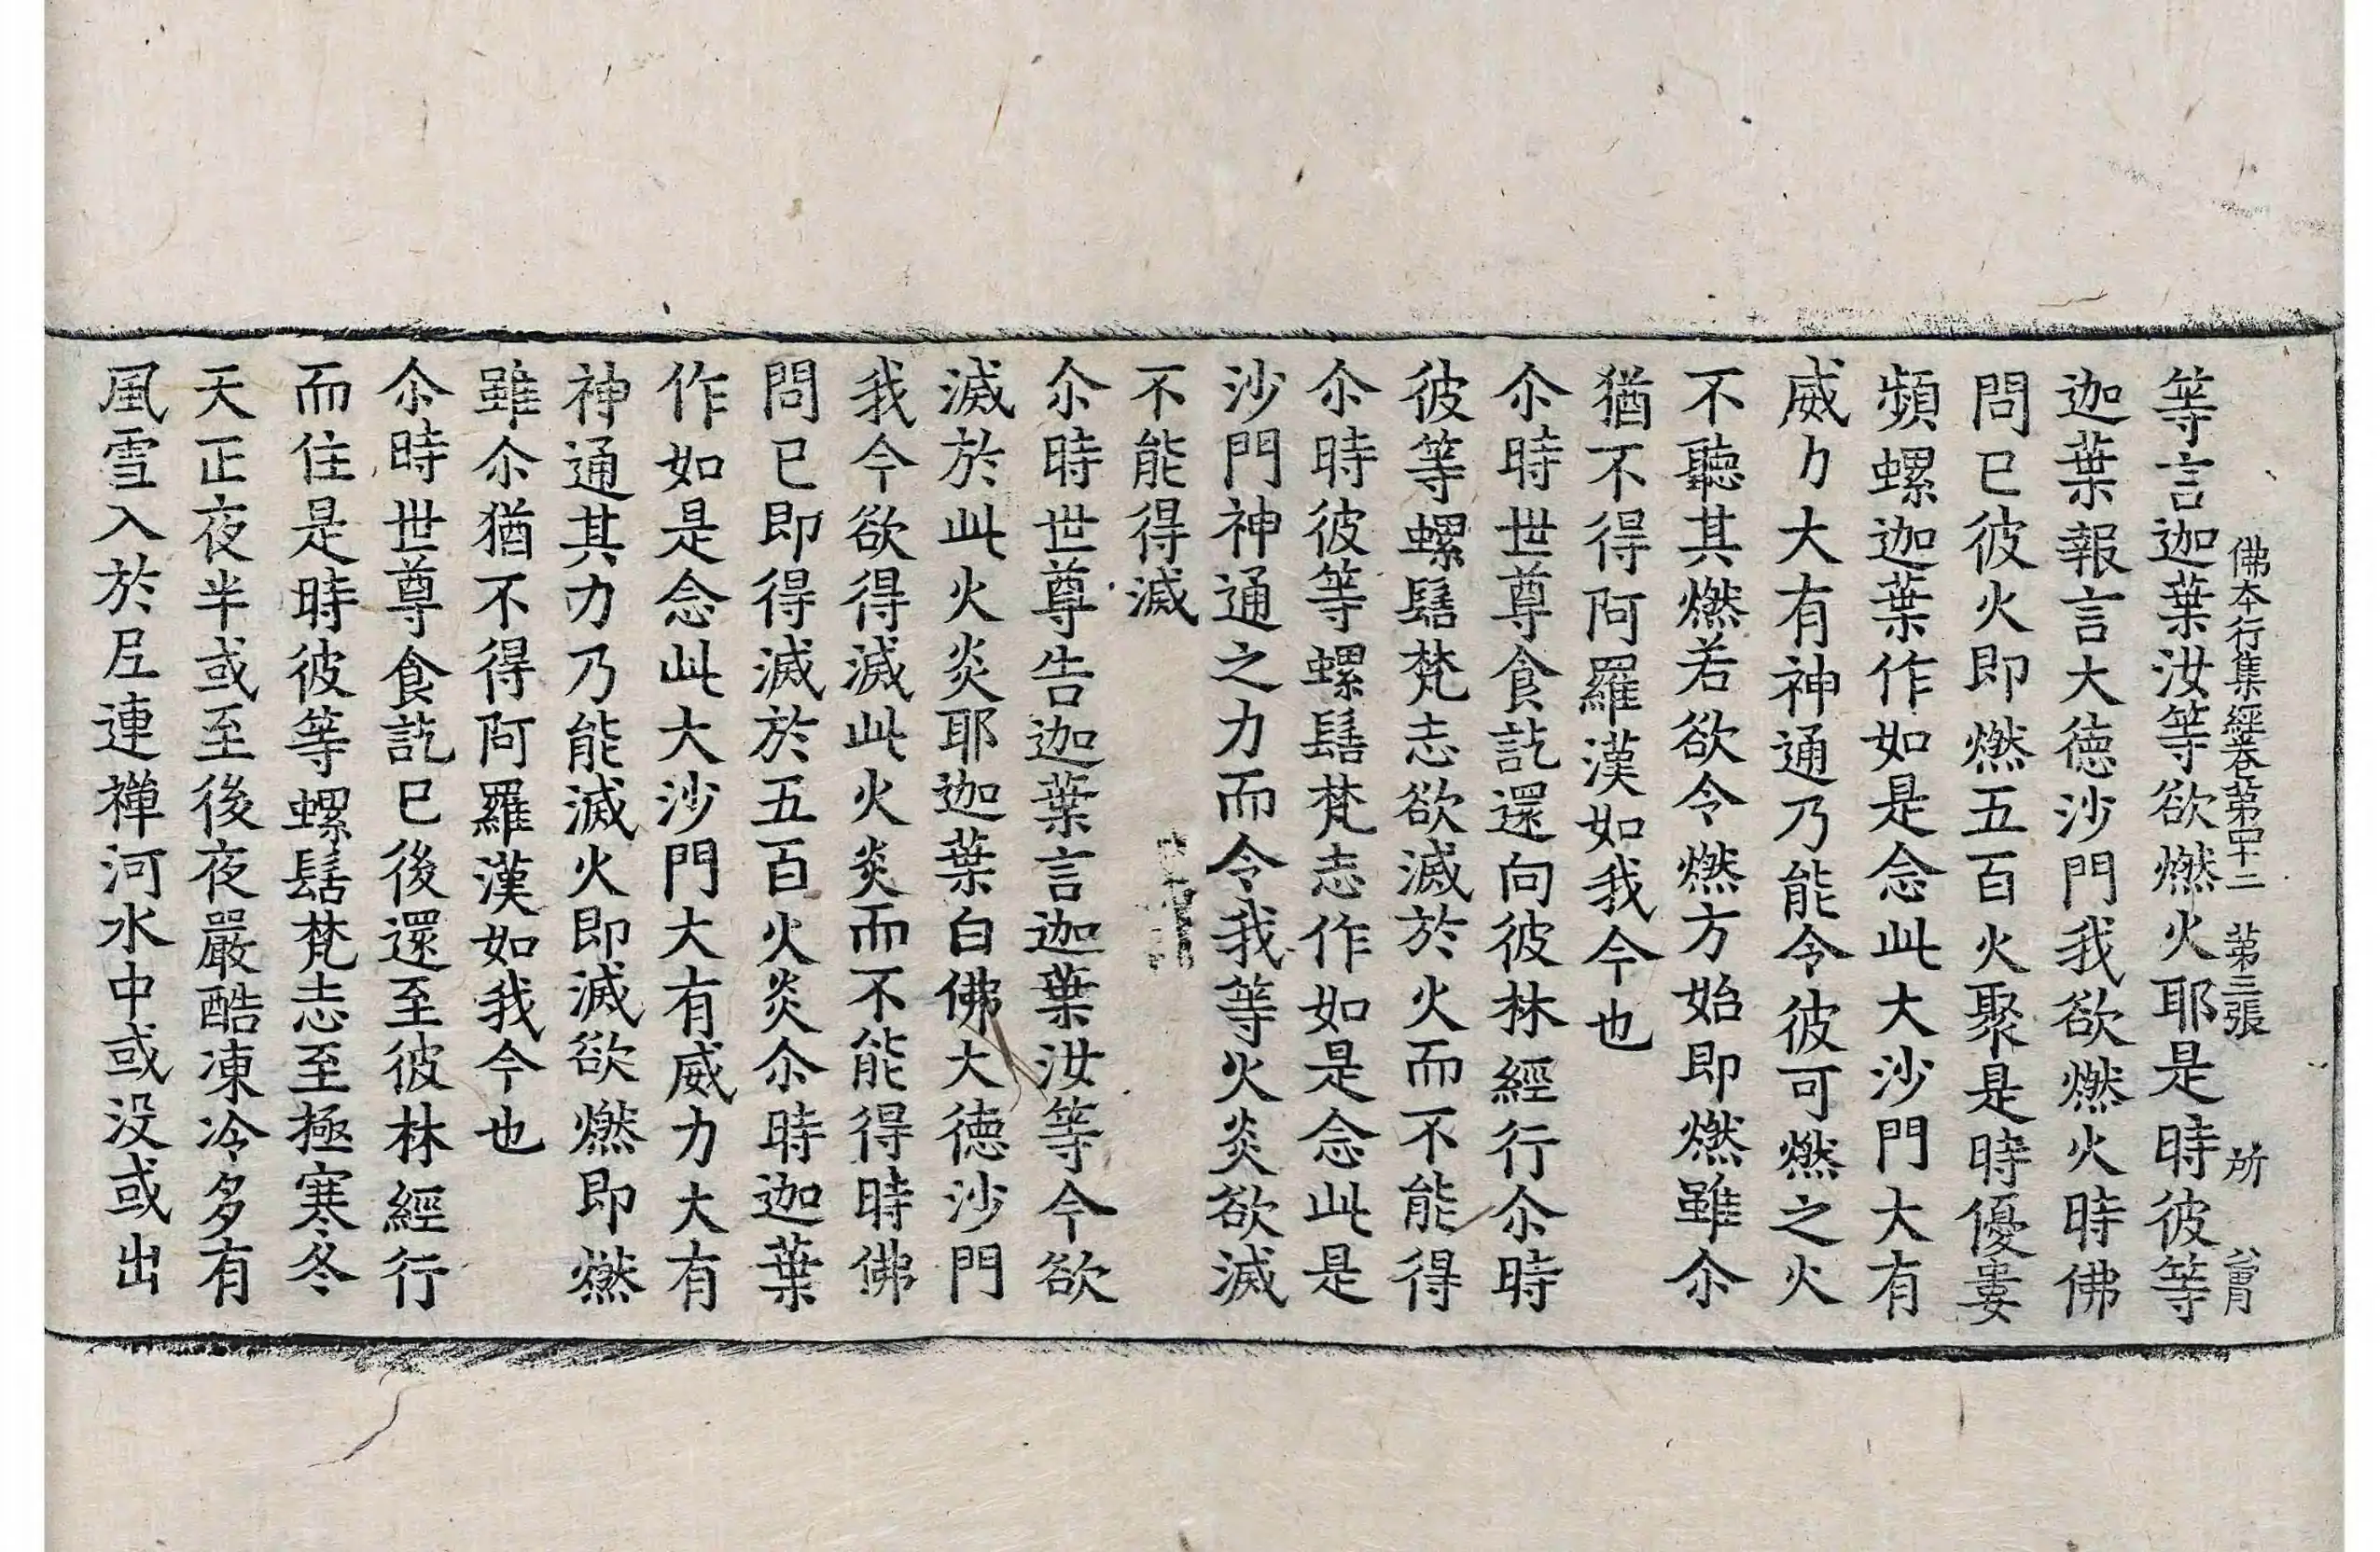 佛本行集經卷第四十二 第三張 所
等言迦葉汝等欲燃火耶是時彼等
迦葉報言大德沙門我欲燃火時佛
問已彼火即燃五百火聚是時優婁
頻螺迦葉作如是念此大沙門大有
威力大有神通乃能令彼可燃之火
不聽其燃若欲令燃方始即燃雖尒
猶不得阿羅漢如我今也
尒時世尊食訖還向彼林經行尒時
彼等螺髻梵志欲滅於火而不能得
尒時彼等螺髻梵志作如是念此是
沙門神通之力而令我等火炎欲滅
不能得滅
尒時世尊告迦葉言迦葉汝等今欲
滅於此火炎耶迦葉白佛大德沙門
我今欲得滅此火炎而不能得時佛
問已即得滅於五百火炎尒時迦葉
作如是念此大沙門大有威力大有
神通其力乃能滅火即滅欲燃即燃
雖尒猶不得阿羅漢如我今也
尒時世尊食訖已後還至彼林經行
而住是時彼等螺髻梵志至極寒冬
天正夜半或至後夜嚴酷凍冷多有
風雪入於尼連禪河水中或没或出